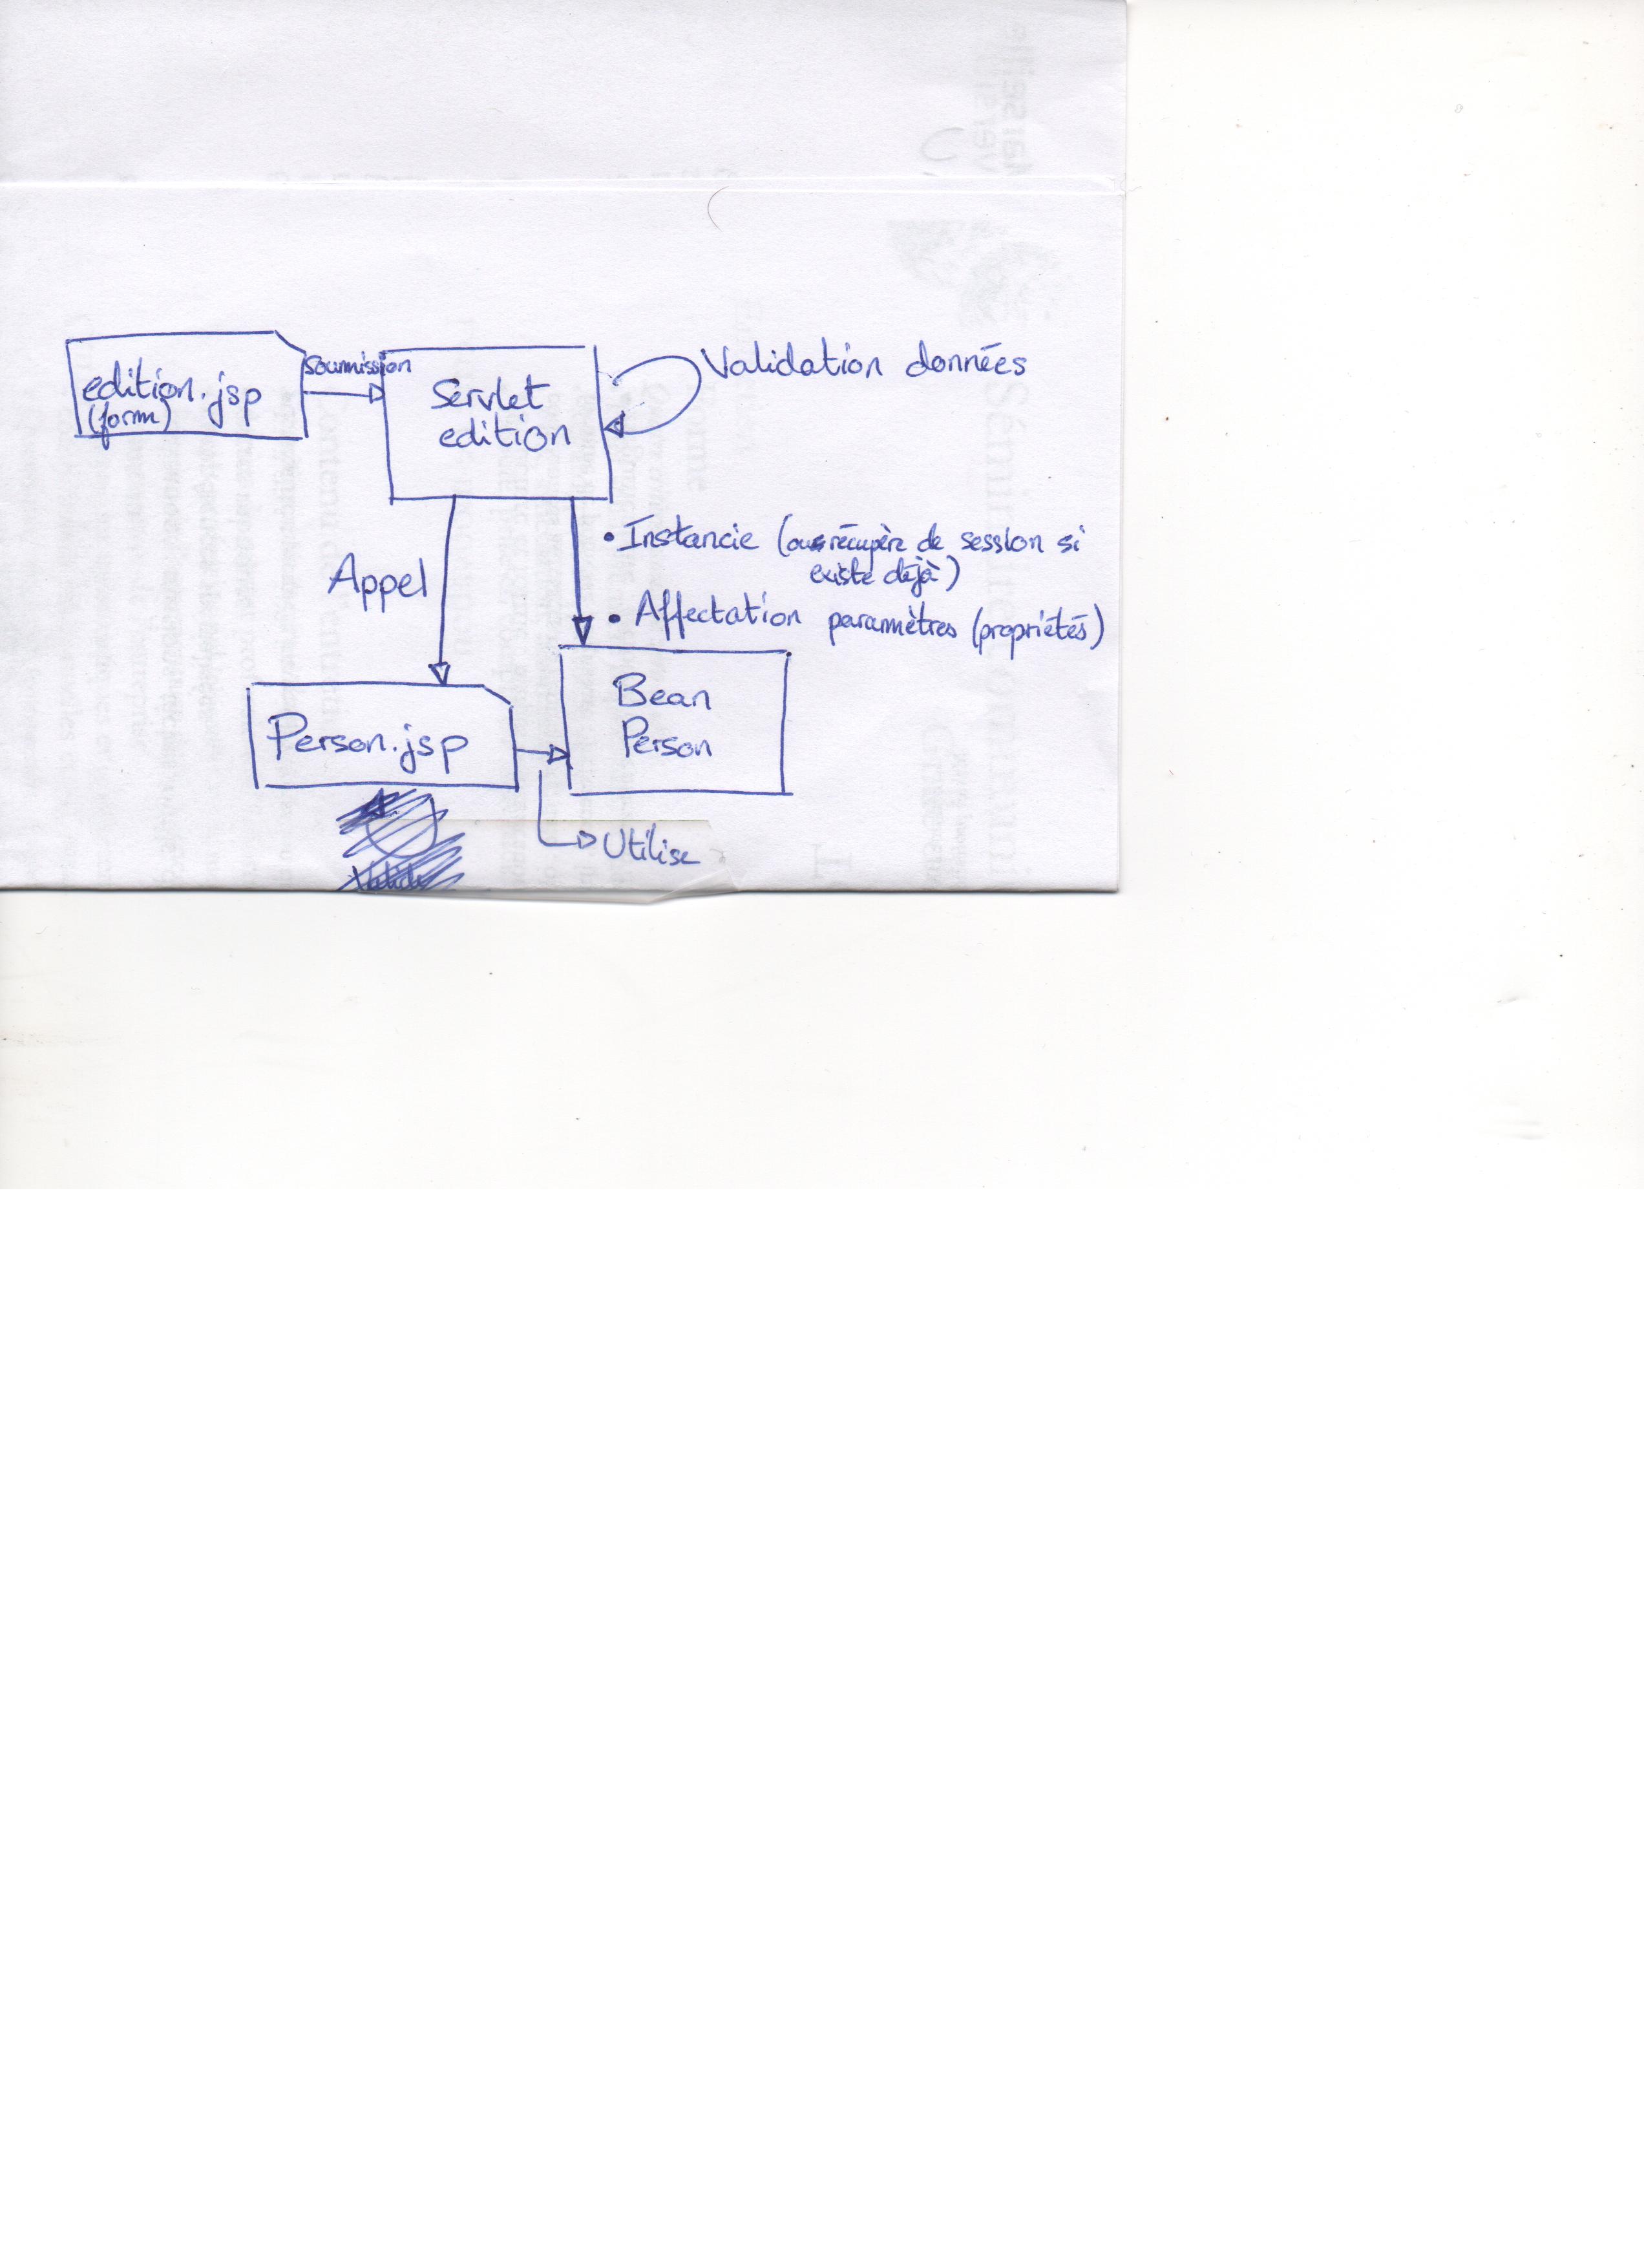 edition.jsp
(form)
Soumission
Servlet
edition
Validation données
Appel
• Instancie (ou récupère de session si
existe déjà)
• Affectation paramètres (propriétés)
Person.jsp
Bean
Person
Utilise